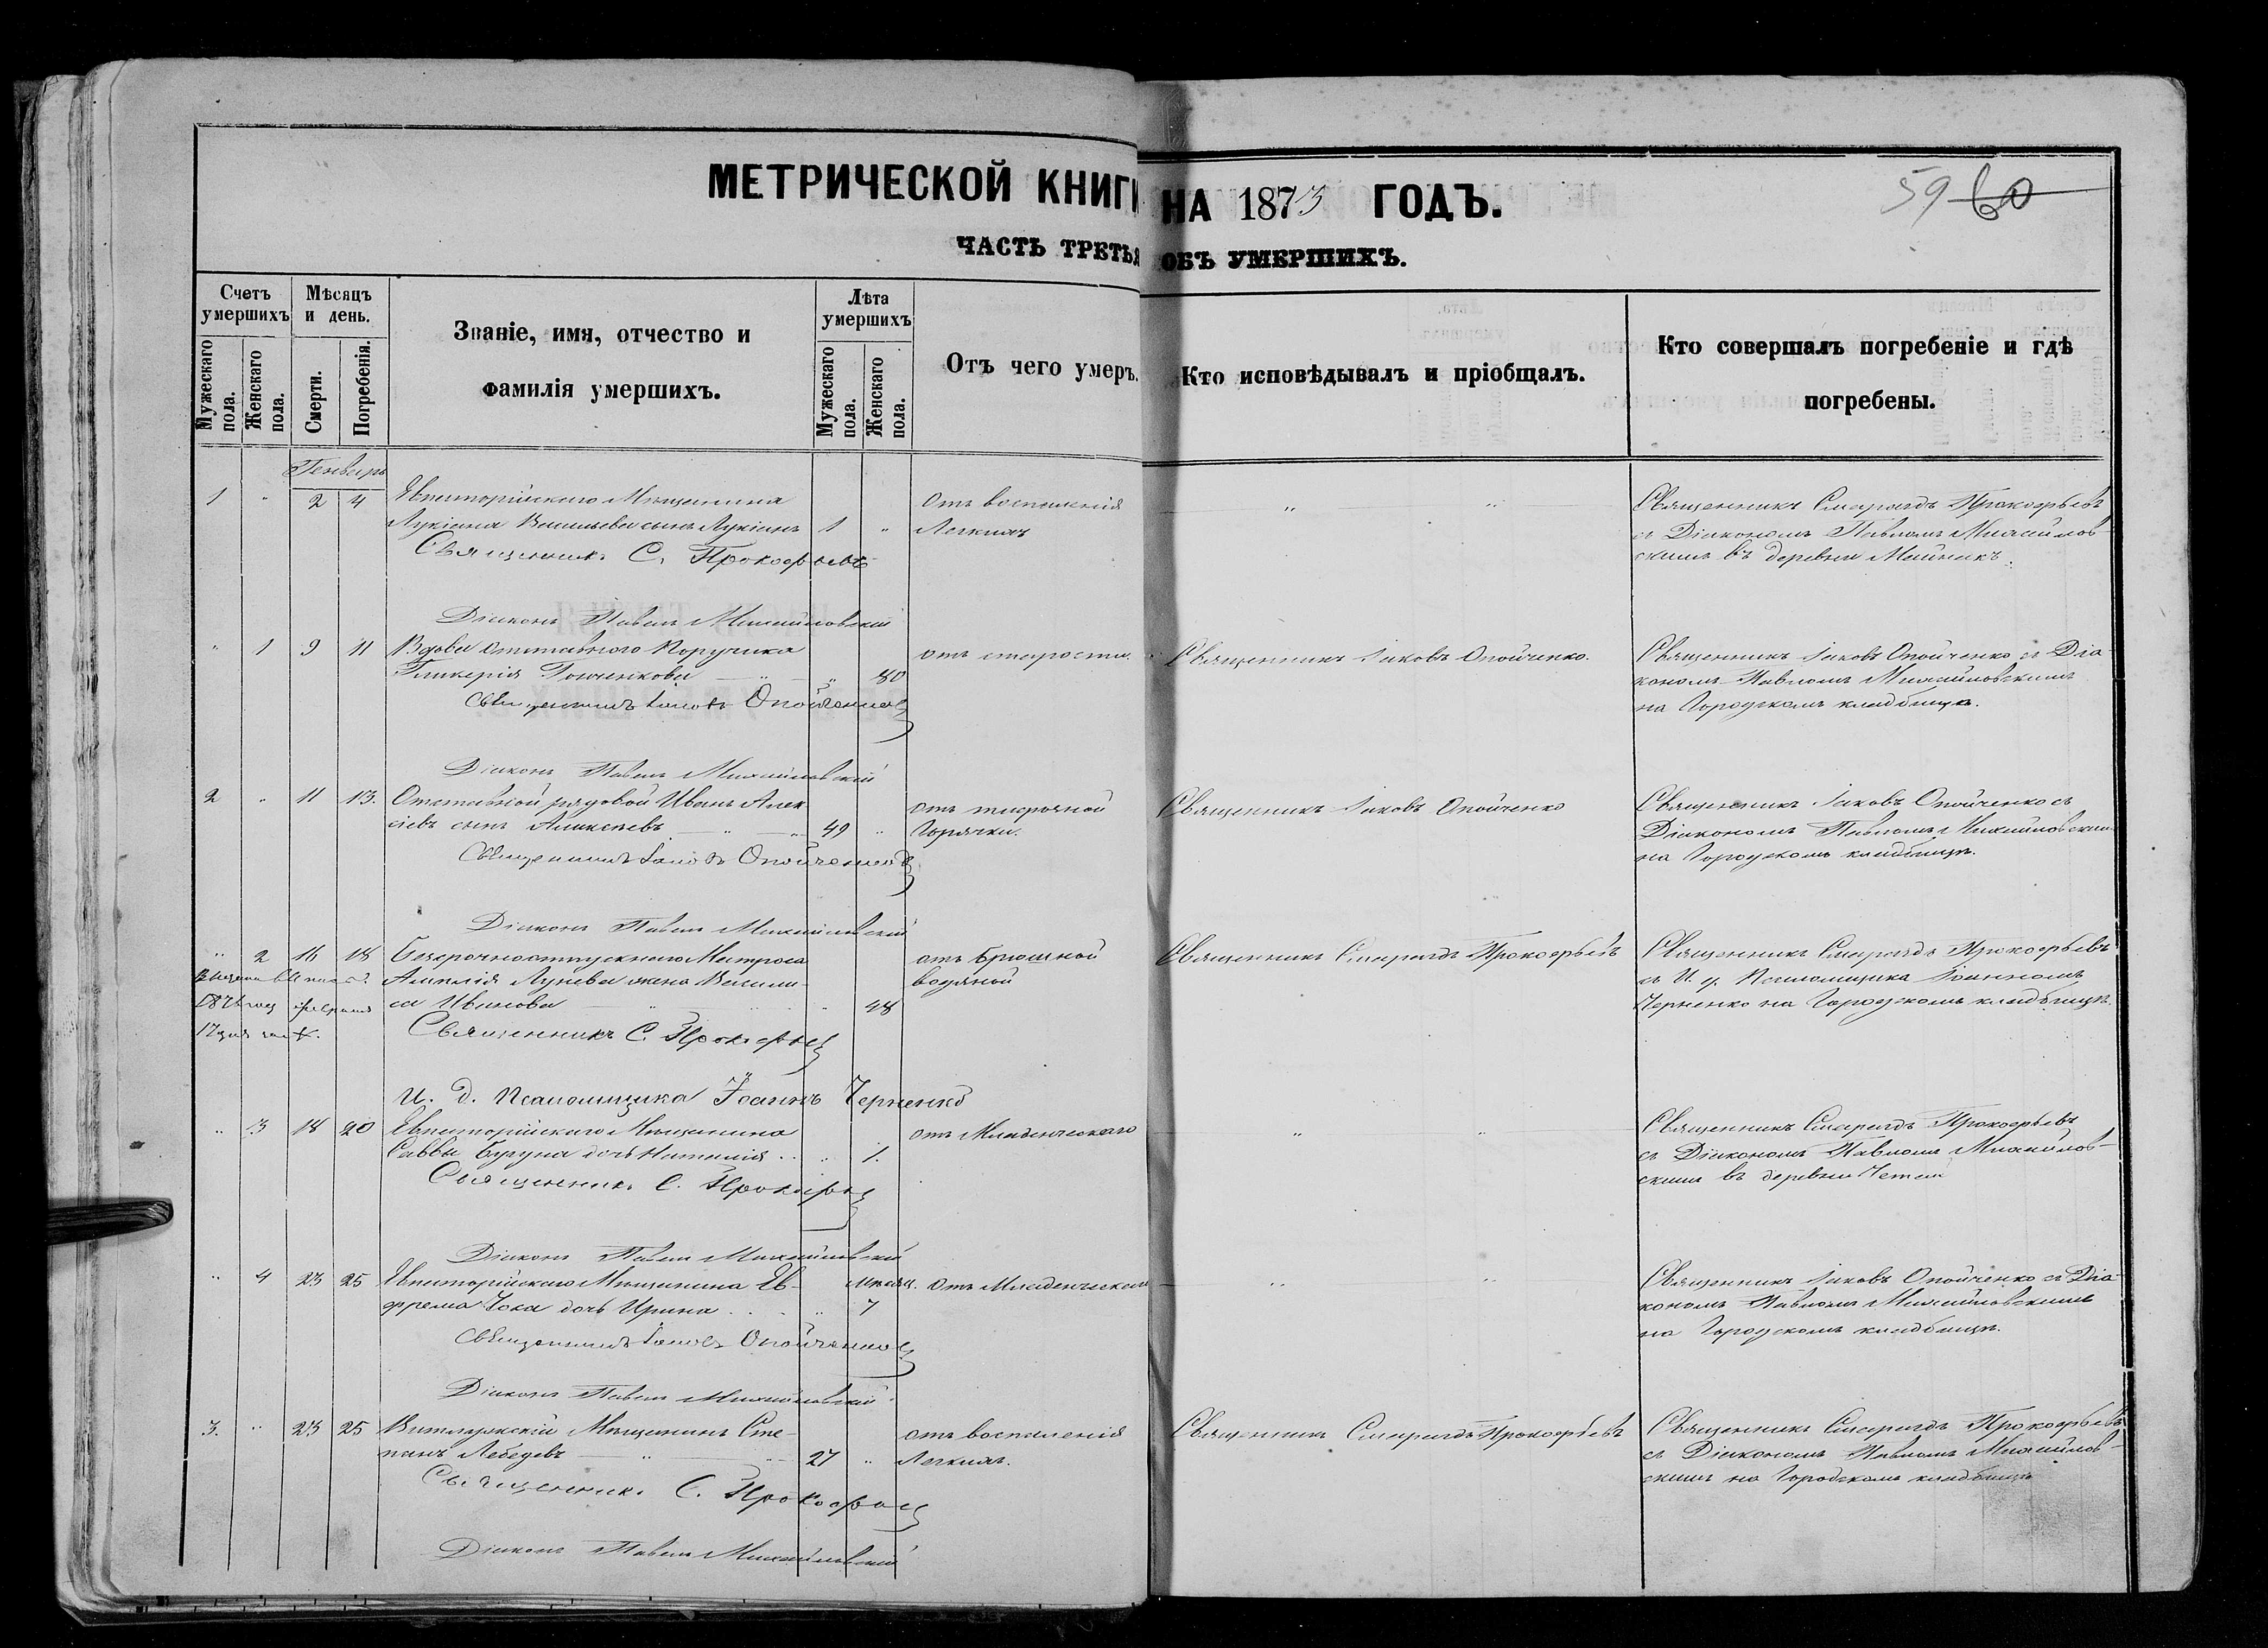 МЕТРИЧЕСКОЙ КНИГИ НА 1873 ГОДЪ.
59 60
ЧАСТЬ ТРЕТЬЯ ОБЪ УМЕРШИХЪ.
Счетъ умершихъ
Мужескаго пола.
Женскаго пола.
Мѣсяцъ и день.
Смерти.
Погребенія.
Званіе, имя, отчество и
фамилія умершихъ.
Лѣта умершихъ
Мужескаго пола.
Женскаго пола.
Отъ чего умеръ.
Кто исповѣдывалъ и пріобщалъ.
Кто совершалъ погребеніе и гдѣ
погребены.
Генварь
1 " 2 4 Евпаторійскаго Мѣщанина
Лукіана Васильева сынъ Лукіанъ 1 "
отъ воспаленія
Легкихъ
" "
Священникъ Смарагдъ Прокофьевъ
съ Діакономъ Павломъ Михайлов
скимъ въ деревни
Священникъ С. Прокофьевъ
Діаконъ Павелъ Михайловскій
" 1 9 11 Вдова отставного Поручика
Гликерія " 80
отъ старости.
Священникъ Іаковъ Опойченко.
Священникъ Іаковъ Опойченко съ Діа
кономъ Павломъ Михайловскимъ
на Городскомъ кладбищѣ.
Священникъ Іаковъ Опойченко
Діаконъ Павелъ Михайловскій
2 " 11 13. Отставной рядовой Иванъ Алек
сіевъ сынъ Алексѣевъ " 49 "
отъ
Горячки.
Священникъ Іаковъ Опойченко
Священникъ Іаковъ Опойченко съ
Діакономъ Павломъ Михайловскимъ
на Городскомъ кладбищѣ.
Священникъ Іаковъ Опойченко
Діаконъ Павелъ Михайловскій
" 2 16 18 Безсрочноотпускного Матроса
Лунева жена Васили-
са Иванова " 48
отъ брюшной
водяной
Священникъ Смарагдъ Прокофьевъ
Священникъ Смарагдъ Прокофьевъ
съ И. д. Псаломщика Іоанномъ
Черненко на Городскомъ кладбищѣ.
февраля
Священникъ С. Прокофьевъ
И. д. Псаломщика Іоаннъ Черненко
" 3 18 20 Евпаторійскаго Мѣщанина
Саввы дочь Наталія " 1.
отъ Младенческаго
" "
Священникъ Смарагдъ Прокофьевъ
съ Діакономъ Павломъ Михайлов-
скимъ въ деревни
Священникъ С. Прокофьевъ
Діаконъ Павелъ Михайловскій
" 4 23 25 Евпаторійскаго Мѣщанина Ев-
фрема дочь Ирина " 7
мѣсяц.
отъ Младенческаго
" "
Священникъ Іаковъ Опойченко съ Діа-
кономъ Павломъ Михайловскимъ
на Городскомъ кладбищѣ.
Священникъ Іаковъ Опойченко
Діаконъ Павелъ Михайловскій.
3. " 23 25 Мѣщанинъ Сте-
панъ Лебедевъ " 27 "
отъ воспаленія
Легкихъ.
Священникъ Смарагдъ Прокофьевъ
Священникъ Смарагдъ Прокофьевъ
съ Діакономъ Павломъ Михайлов-
скимъ на Городскомъ кладбищѣ
Священникъ С. Прокофьевъ
Діаконъ Павелъ Михайловскій